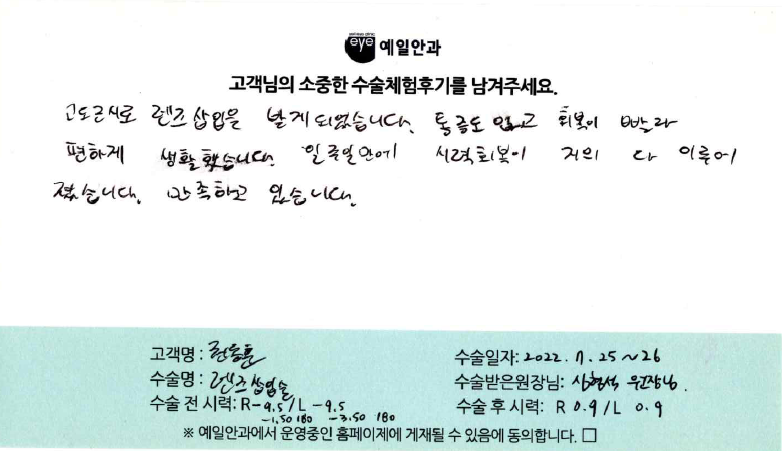 eye 예일안과
고객님의 소중한 수술체험후기를 남겨주세요.
고도근시로 렌즈삽입을 받게되었습니다. 통증도 없고 회복이 빨라
편하게 생활했습니다. 일주일안에 시력회복이 거의 다 이루어
졌습니다. 만족하고 있습니다.
고객명 :
수술명 : 렌즈삽입술
수술 전 시력: R -9.5 / L -9.5
-1.50 180 -3.50 180
수술일자: 2022. 7. 25 ~ 26
수술받은원장님: 원장님.
수술 후 시력: R 0.9 / L 0.9
※ 예일안과에서 운영중인 홈페이제에 게재될 수 있음에 동의합니다. □